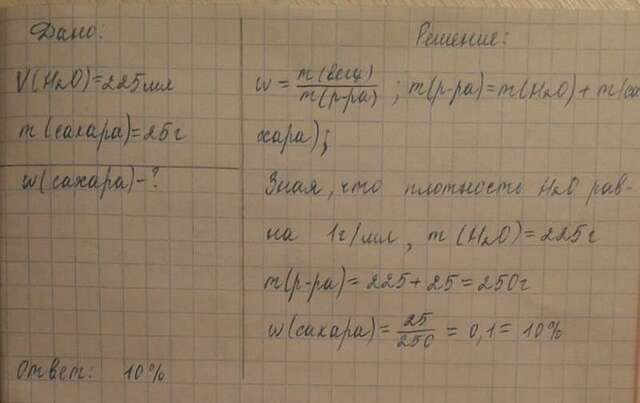 Дано:
V(H₂O)=225мл
m(сахара)=25г
w(сахара)-?
Решение:
w = m(вещ)/m(р-ра) ; m(р-ра)=m(H₂O)+m(са-
хара);
Зная, что плотность H₂O рав-
на 1г/мл, m(H₂O)=225г
m(р-ра)=225+25=250г
w(сахара)= 25/250 = 0,1= 10%
Ответ: 10%